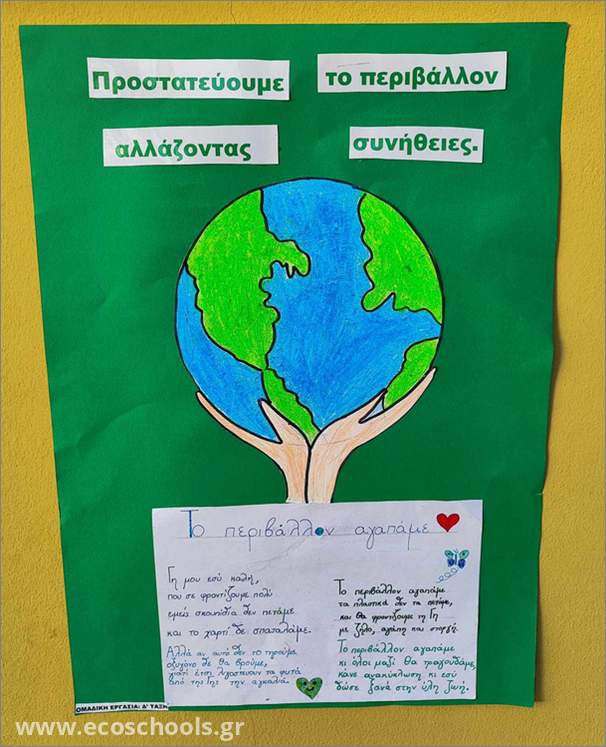 Προστατεύουμε το περιβάλλον
αλλάζοντας συνήθειες.
Το περιβάλλον αγαπάμε
Γη μου εσύ καλή,
που σε φροντίζουμε πολύ
εμείς σκουπίδια δεν πετάμε
και το χαρτί δε σπαταλάμε.
Αλλά αν αυτό δεν το τηρούμε
οξυγόνο δε θα βρούμε,
γιατί έτσι λιγοστεύουν τα φυτά
από της Γης την αγκαλιά.
Το περιβάλλον αγαπάμε
τα πλαστικά δεν τα πετάμε,
και θα φροντίζουμε τη Γη
με ζήλο, αγάπη και στοργή.
Το περιβάλλον αγαπάμε
κι όλοι μαζί θα τραγουδάμε,
κάνε ανακύκλωση κι εσύ
δώσε ξανά στην ύλη ζωή.
ΟΜΑΔΙΚΗ ΕΡΓΑΣΙΑ: Δ' ΤΑΞΗ
www.ecoschools.gr